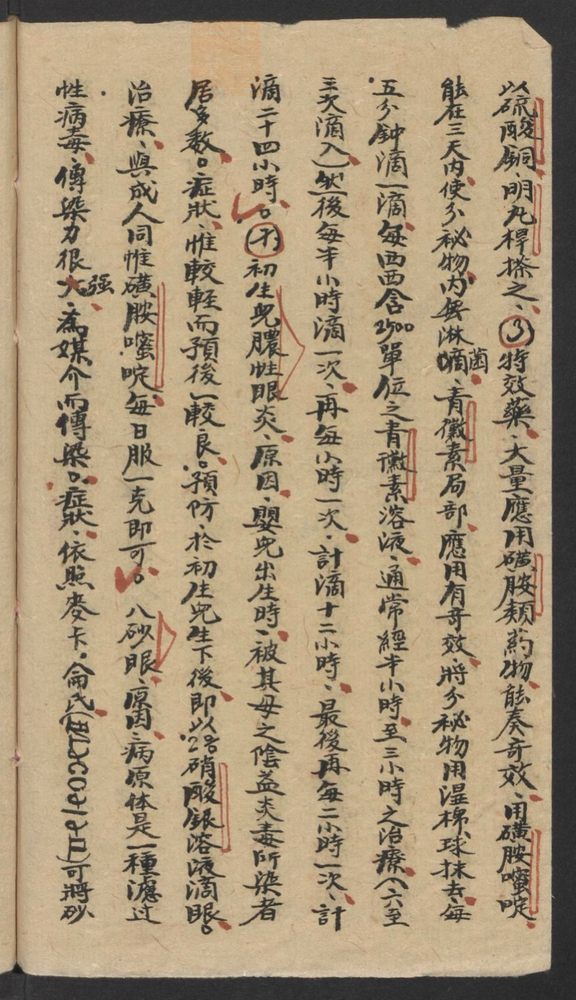 以硫酸銅、明丸桿搽之、③特效藥、大量應用磺胺類药物能奏奇效、用磺胺嘧啶
能在三天内使分秘物内無淋嘀菌、青黴素局部應用有奇效、將分秘物用湿棉球抹去每
五分鈡滴一滴每西西含2500單位之青黴素溶液、通常經半小時至三小時之治療（六至
三次滴入）然後每半小時滴一次、再每小時一次、計滴十二小時、最後再每二小時一次、計
滴二十四小時。㈩初生兒膿性眼炎、原因、嬰兒出生時、被其母之陰益炎毒所染者
居多数。症狀、惟較輕而預後較良。預防、於初生兒生下後即以2%硝酸銀溶液滴眼。
治療、與成人同惟磺胺嘧啶每日服一克即可。八砂眼、原因、病原体是一種濾过
性病毒、傳染力很强、為媒介而傳染。症狀、依照麥卡。侖氏（MacCallan）可將砂